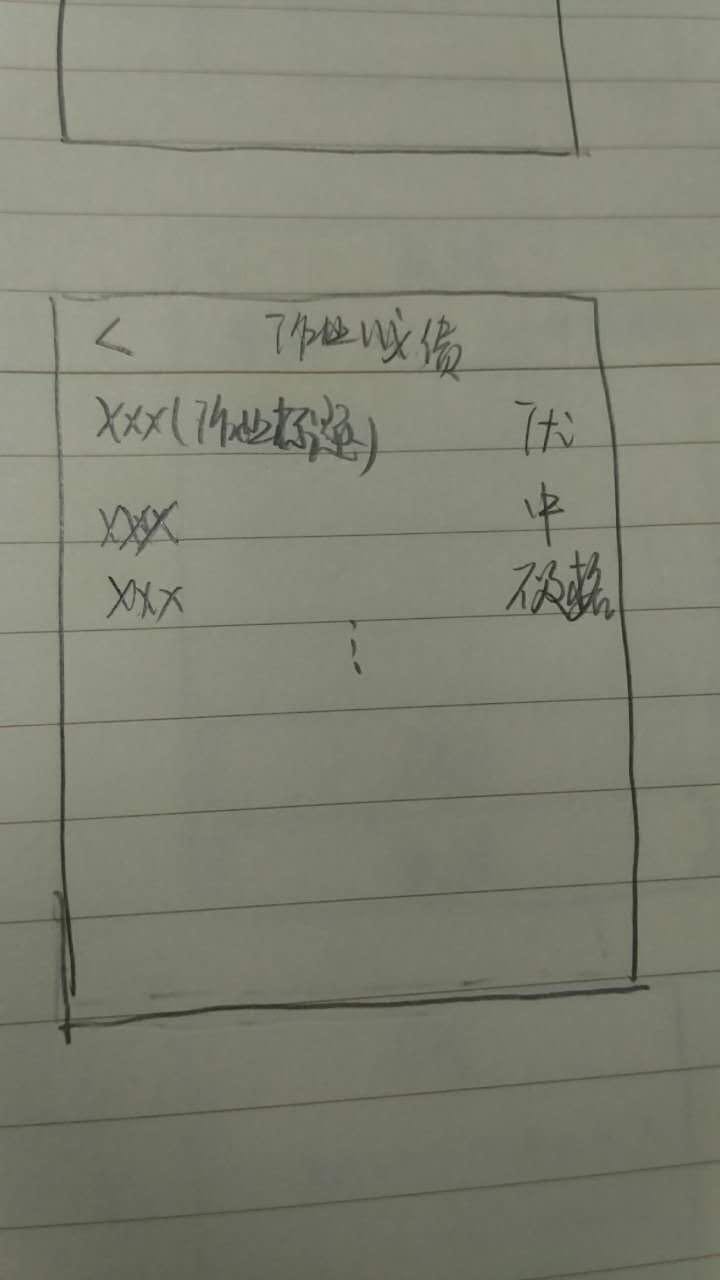 < 作业成绩
xxx(作业标题) 优
xxx 中
xxx 不及格
⋮